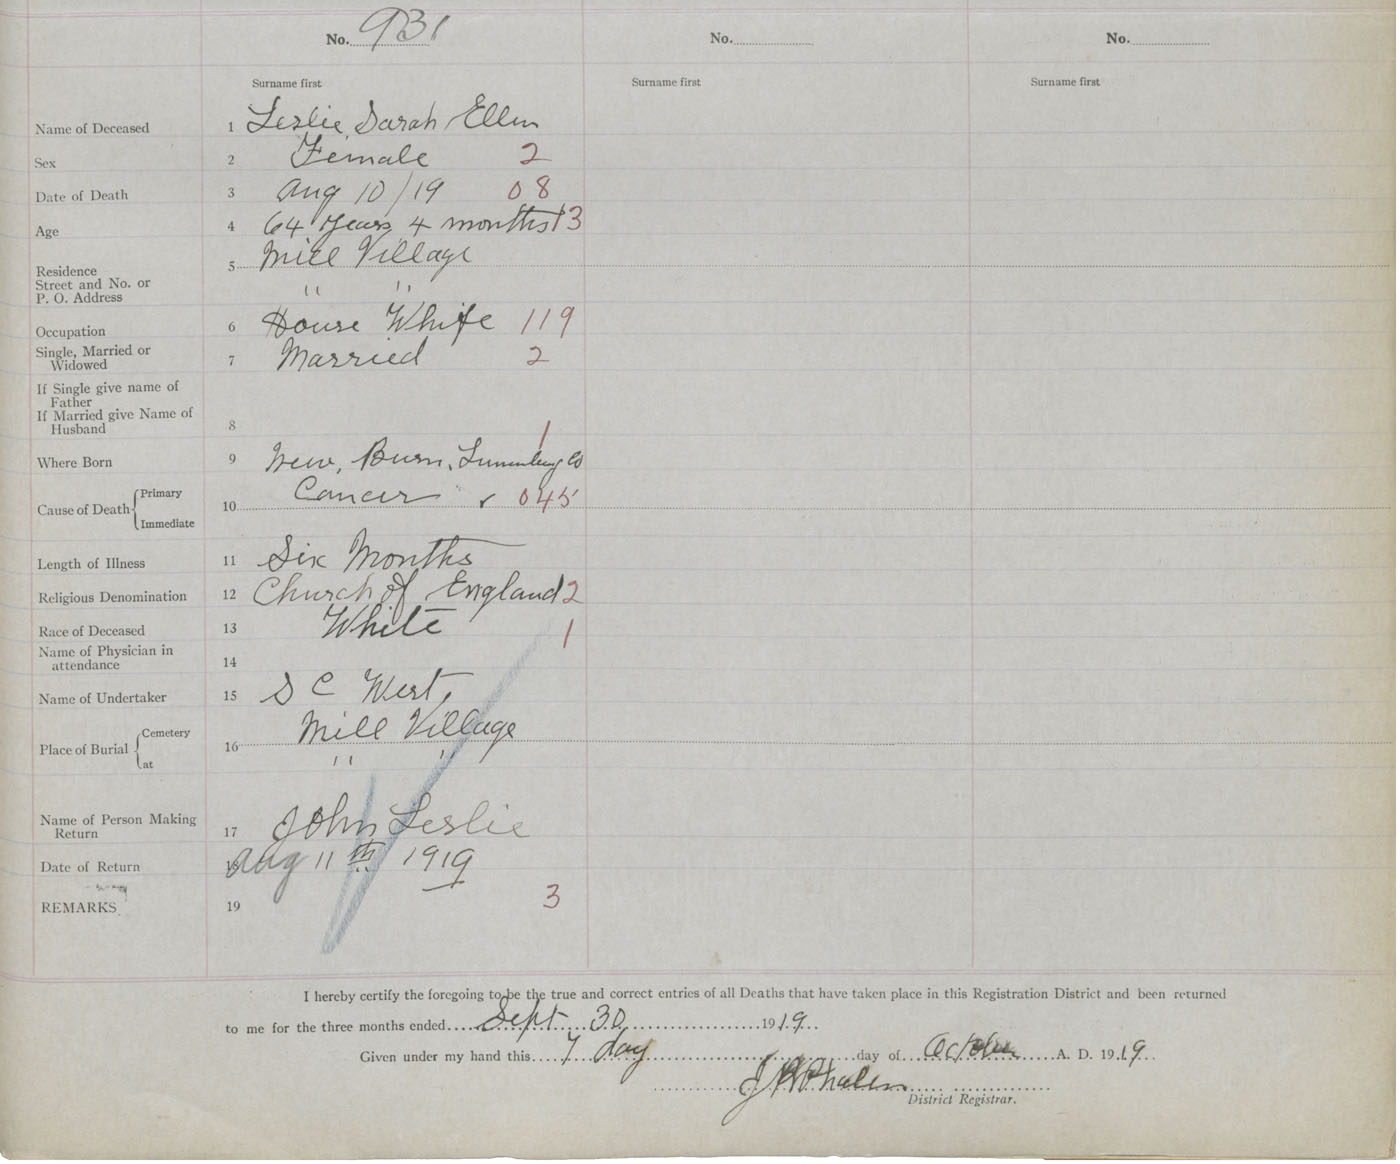 No. 931 No. No.
Surname first Surname first Surname first
Name of Deceased 1 Leslie, Sarah Ellen
Sex 2 Female 2
Date of Death 3 Aug 10/19 08
Age 4 64 Years 4 months 13
Residence Street and No. or P. O. Address 5 Mill Village
" "
Occupation 6 House Whife 119
Single, Married or Widowed 7 Married 2
If Single give name of Father
If Married give Name of Husband 8 1
Where Born 9 New, Burn, Lunenburg Co
Cause of Death Primary Immediate 10 Cancer 045
Length of Illness 11 Six Months
Religious Denomination 12 Church of England 2
Race of Deceased 13 White 1
Name of Physician in attendance 14
Name of Undertaker 15 S C West,
Place of Burial Cemetery at 16 Mill Village
" "
Name of Person Making Return 17 John Leslie
Date of Return 18 Aug 11th 1919
REMARKS 19 3
I hereby certify the foregoing to be the true and correct entries of all Deaths that have taken place in this Registration District and been returned
to me for the three months ended Sept 30 1919
Given under my hand this 7 day day of October A. D. 1919
Phalen
District Registrar.